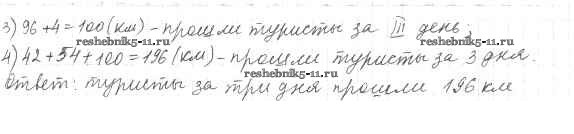 3) 96+4=100 (км) - прошли туристы за III день;
reshebnik5-11.ru reshebnik5-11.ru
4) 42+54+100=196 (км) - прошли туристы за 3 дня.
reshebnik5-11.ru reshebnik5-11.ru
Ответ: туристы за три дня прошли 196 км